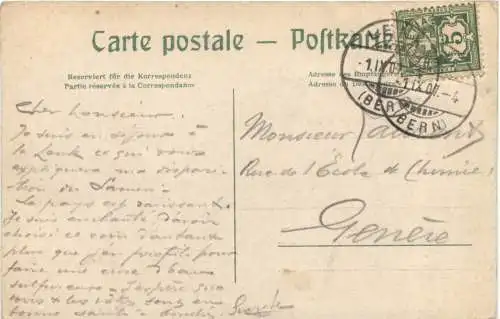 Carte postale — Postkarte
Reserviert für die Korrespondenz
Partie réservée à la Correspondance
Adresse des
Adresse du
5
(BERN)
Cher Monsieur.
Je suis en séjour à
la Lenk ce qui vous
expliquera ma dispari-
tion du
Le pays est ravissant.
Je suis enchanté d'avoir
choisi ce coin d'autant
plus que j'en profite pour
faire une cure d'eau
sulfureuse. J'espère que
vous & les vôtres sont en
bonne santé &
Monsieur
Rue de l'École de Chimie
Genève